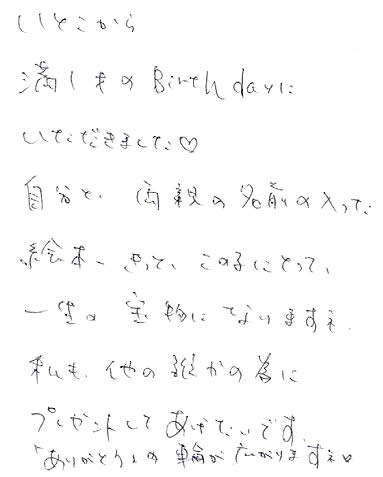 いとこから
満1才のBirthdayに
いただきました♡
自分と、両親の名前の入った
絵本。きっと、この子にとって、
一生の宝物になりますネ。
私も、他の誰かの為に
プレゼントしてあげたいです。
「ありがとう」の輪が広がりますネ♡